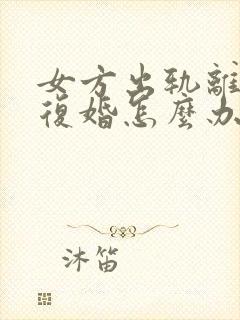 女方出軌離
復婚怎麼办
沐笛